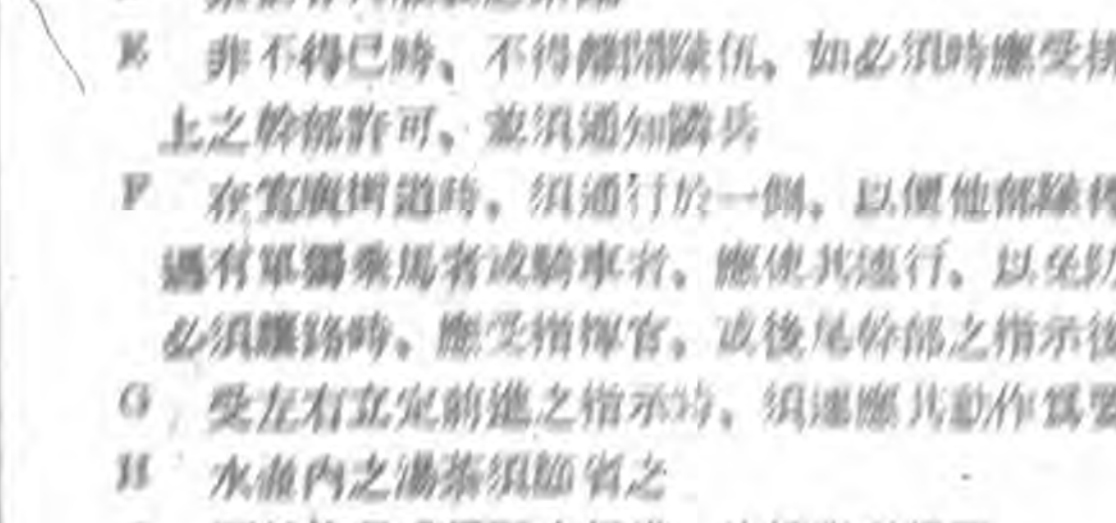 E 非不得已時、不得離開隊伍。如必須時應受排
上之幹部許可、並須通知隣兵
F 在寬廣街道時。須通行於一側。以便他部隊
遇有單獨乘馬者或騎車者。應使其速行。以免防
必須讓路時。應受指揮官。或後尾幹部之指示後
G 受左右立定前進之指示時、須速應其動作爲要
H 水壺內之湯茶須節省之